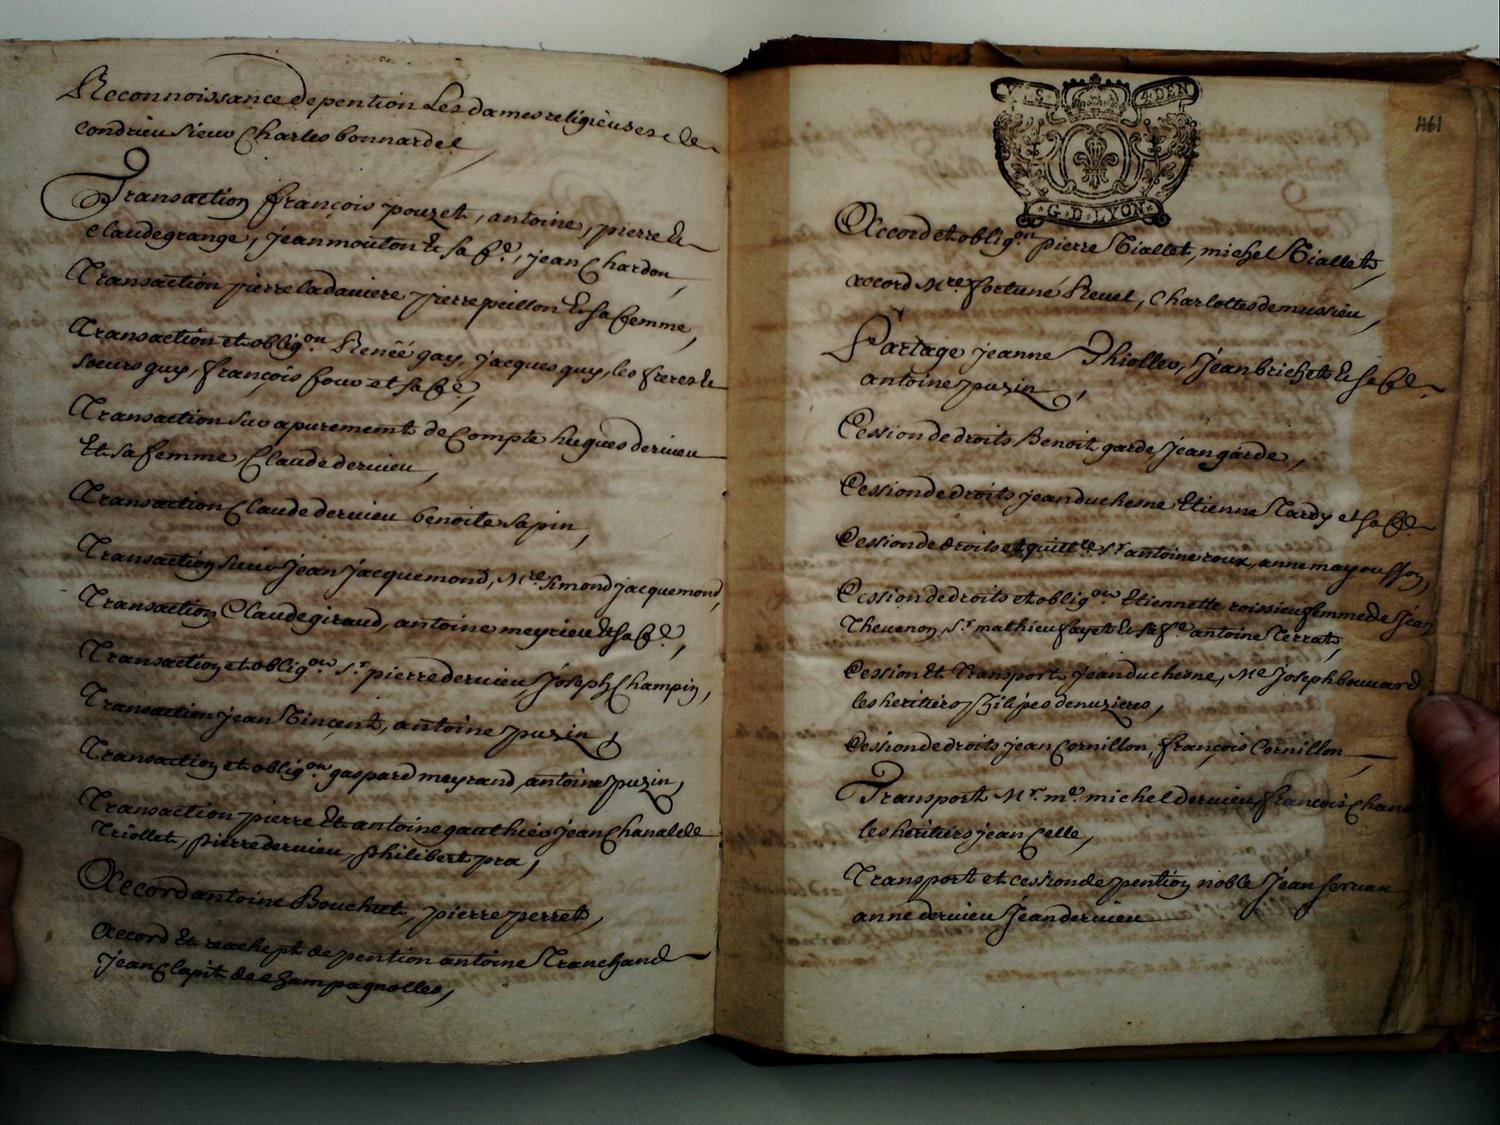 Reconnoissance de pention Les dames religieuses de
condrieu sieur Charles bonnardel
Transaction françois pouzet, antoine, pierre Et
Claude grange, jean mouton Et sa fe, jean Chardon,
Transaction pierre ladaviere pierre peillon Et sa femme,
Transaction et oblign Renée gay, jacques guy, les freres Et
soeurs guy, françois four et sa fe,
Transaction sur apurement de Compte hugues dervieu
Et sa femme, Claude dervieu,
Transaction Claude dervieu benoite sapin,
Transaction sieur jean jacquemond, Mre Simond jacquemond,
Transaction Claude giraud, antoine meyrieu Et sa fe,
Transaction et oblign sr pierre dervieu, joseph Champin,
Transaction jean Vincent, antoine puzin,
Transaction et oblign gaspard meyrand, antoine puzin,
Transaction pierre Et antoine gauthier jean Chanal de
Triollet, pierre dervieu, philibert pra,
Accord antoine Bouchut, pierre perret,
Accord Et reachept de pention antoine Tranchand
jean Clapit de Champagnolles,
G. D. LYON
461
Accord et oblign pierre Viallet, michel Viallet,
accord Mre fortuné Revel, Charlotte demussieu,
Partage jeanne Thioller, jean brichet Et sa fe
antoine puzin,
Cession de droits Benoit garde jean garde,
Cession de droits jean duchesne Etienne Tardy et sa fe
Cession de droits et quittce sr antoine roux, anne mayoussoy,
Cession de droits et oblign Etiennette roissieu femme de jean
Thevenon, sr mathieu fayet Et sa fe antoine Terrat,
Cession Et Transport jean duchesne, Me joseph bouvard
les heritiers philipes denuzieres,
Cession de droits jean Cornillon, françois Cornillon
Transport Mr me michel dervieu, françois Chana
les heritiers jean Celle,
Transport et cession de pention noble jean servan
anne dervieu jean dervieu